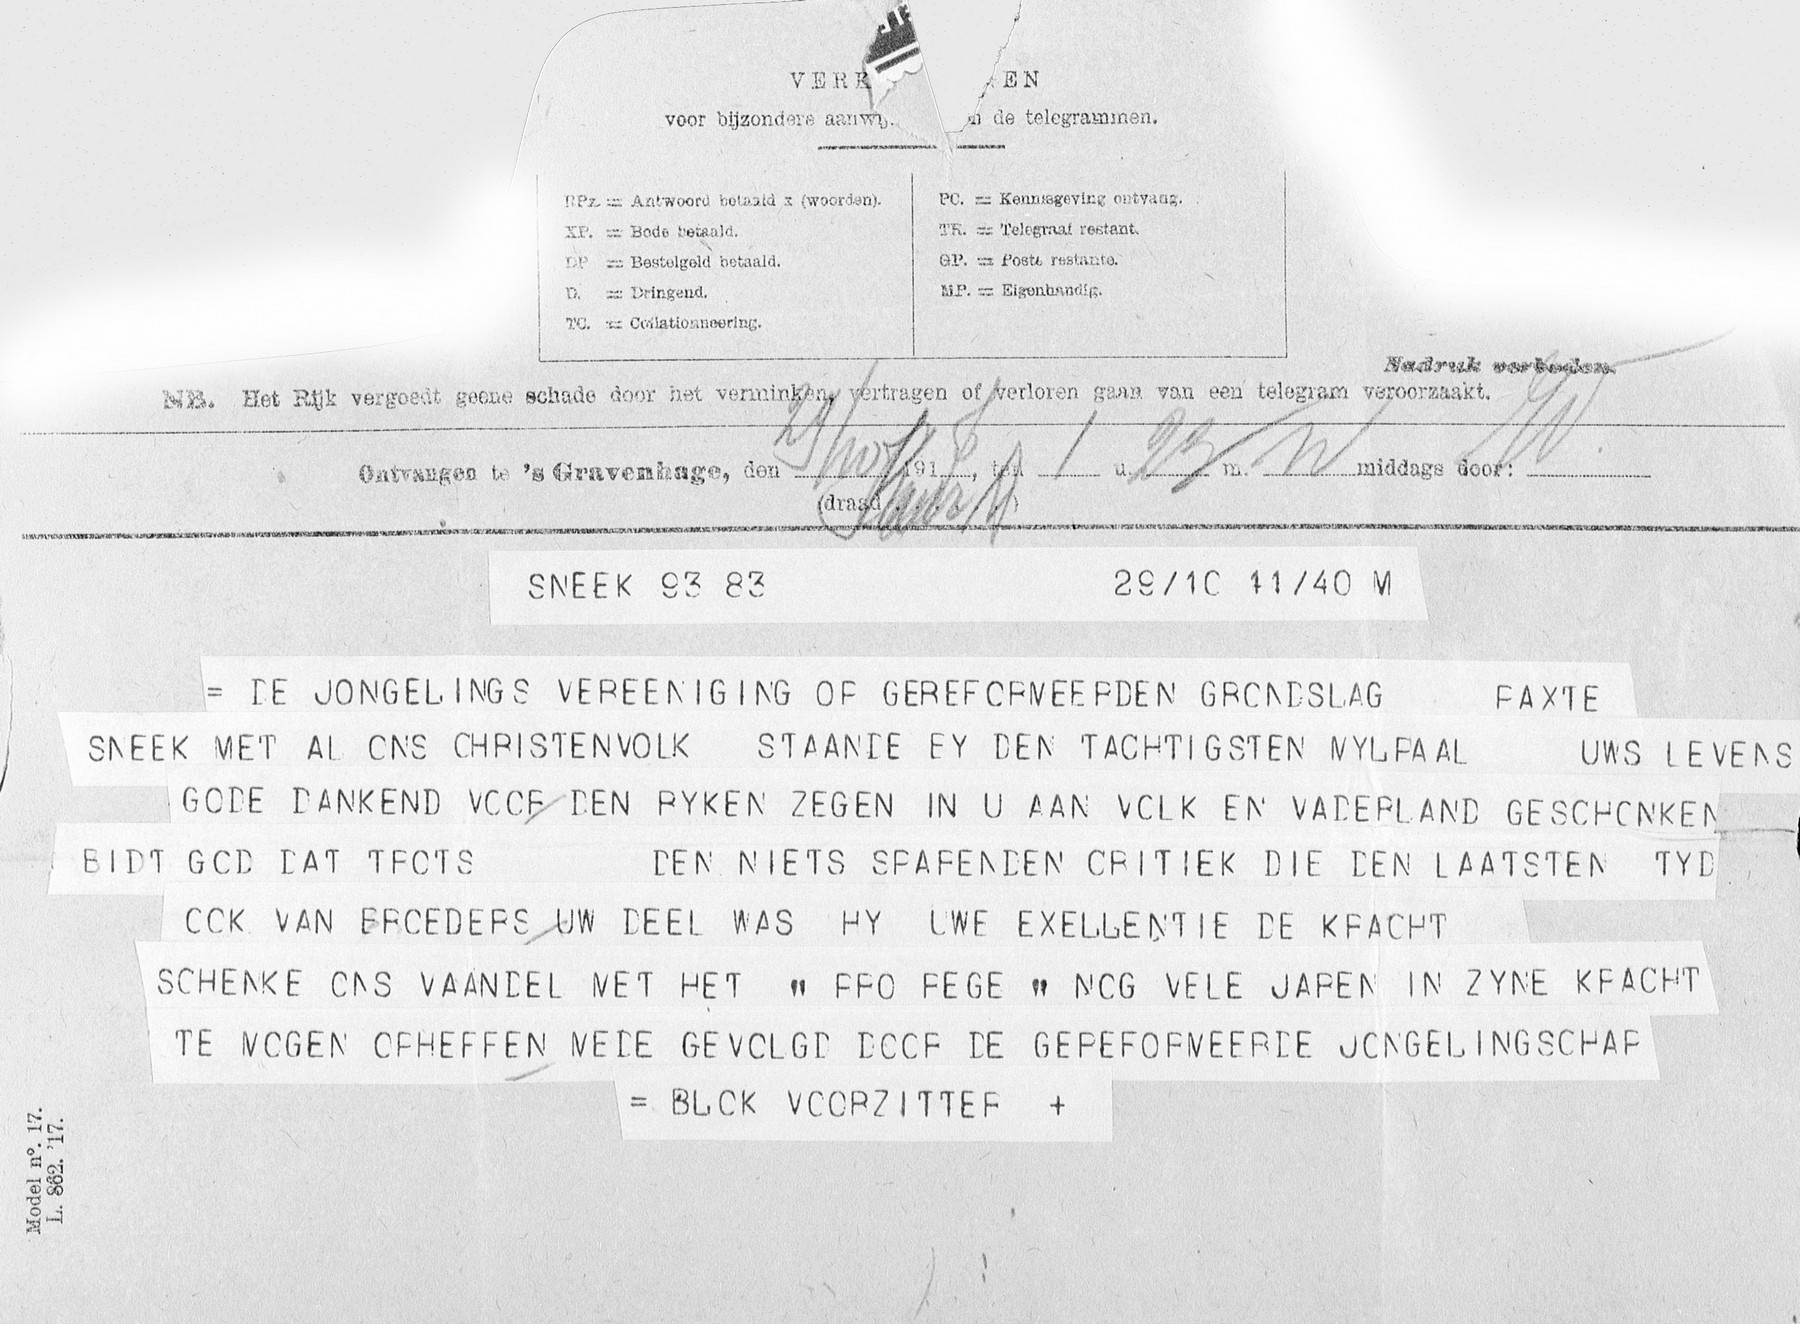 VERK EN
voor bijzondere aanwij. n de telegrammen.
RPx = Antwoord betaald x (woorden).
XP. = Bode betaald.
DP = Bestelgeld betaald.
D. = Dringend.
TC. = Collationneering.
PC. = Kennisgeving ontvang.
TR. = Telegraaf restant.
GP. = Poste restante.
MP. = Eigenhandig.
Nadruk verboden.
NB. Het Rijk vergoedt geene schade door het verminken, vertragen of verloren gaan van een telegram veroorzaakt.
Ontvangen te 's Gravenhage, den 29/ 191 8, ten 1 u. 23 m. middags door:
(draad )
SNEEK 93 83 29/10 11/40 M
= DE JONGELINGS VEREENIGING OP GEREFORMEERDEN GRONDSLAG PAXTE
SNEEK MET AL ONS CHRISTENVOLK STAANDE BY DEN TACHTIGSTEN MYLPAAL UWS LEVENS
GODE DANKEND VOOR DEN RYKEN ZEGEN IN U AAN VOLK EN VADERLAND GESCHONKEN
BIDT GOD DAT TROTS DEN NIETS SPARENDEN CRITIEK DIE DEN LAATSTEN TYD
OOK VAN BROEDERS UW DEEL WAS HY UWE EXELLENTIE DE KRACHT
SCHENKE ONS VAANDEL MET HET " PRO REGE " NOG VELE JAREN IN ZYNE KRACHT
TE MOGEN OPHEFFEN MEDE GEVOLGD DOOR DE GEREFORMEERDE JONGELINGSCHAP
= BLOK VOORZITTER +
Model nº. 17.
L. 862. '17.